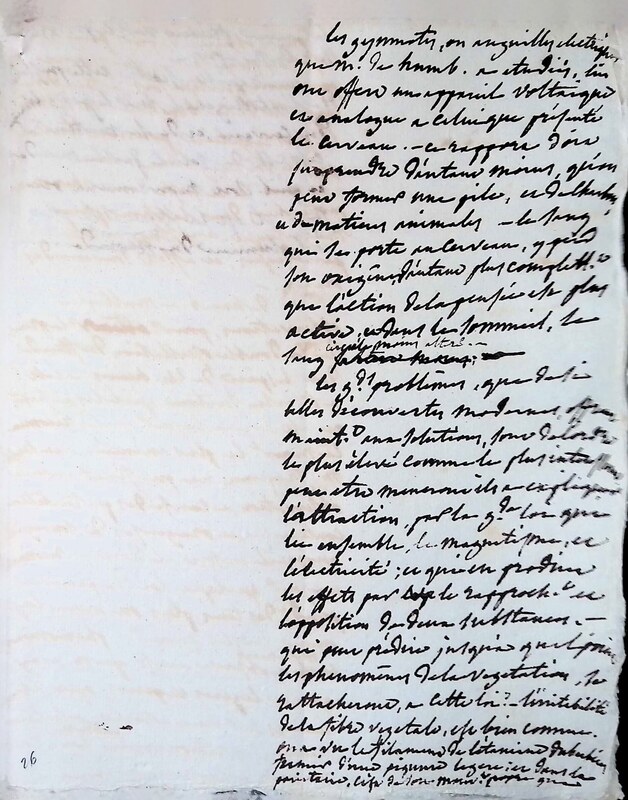 les gymnotes, ou anguilles electriques
que m. de humb. a etudiés, lui
ont offert un appareil voltaique
et analogue a celui que présente
le cerveau. — ce rapport doit
surprendre d'autant moins, qu'on
peut former une pile, et de
et de matieres animales — le sang
qui se porte au cerveau, y perd
son oxigène, d'autant plus complettt
que l'action de la pensée est plus
active, et dans le sommeil, le
sang circule moins altéré. —
les gds problêmes, que de si
belles découvertes modernes, offrent
maintt aux solutions, sont de l'ordre
le plus élevé comme le plus
peut etre meneront ils a expliquer
l'attraction, par la gde loi que
lie ensemble, le magnetisme, et
l'électricité; et qui en produit
les effets par le rapprocht et
l'oppolition de deux substances. —
qui peut prédire jusqu'a quel point
les phenomènes de la vegetation, se
rattacheront, a cette loi? — l'irritabilité
de la fibre vegetale, est bien connue.
on a vu le filament de l'étamine du
d'une piqure legere; et dans la
parietaire, de son
26